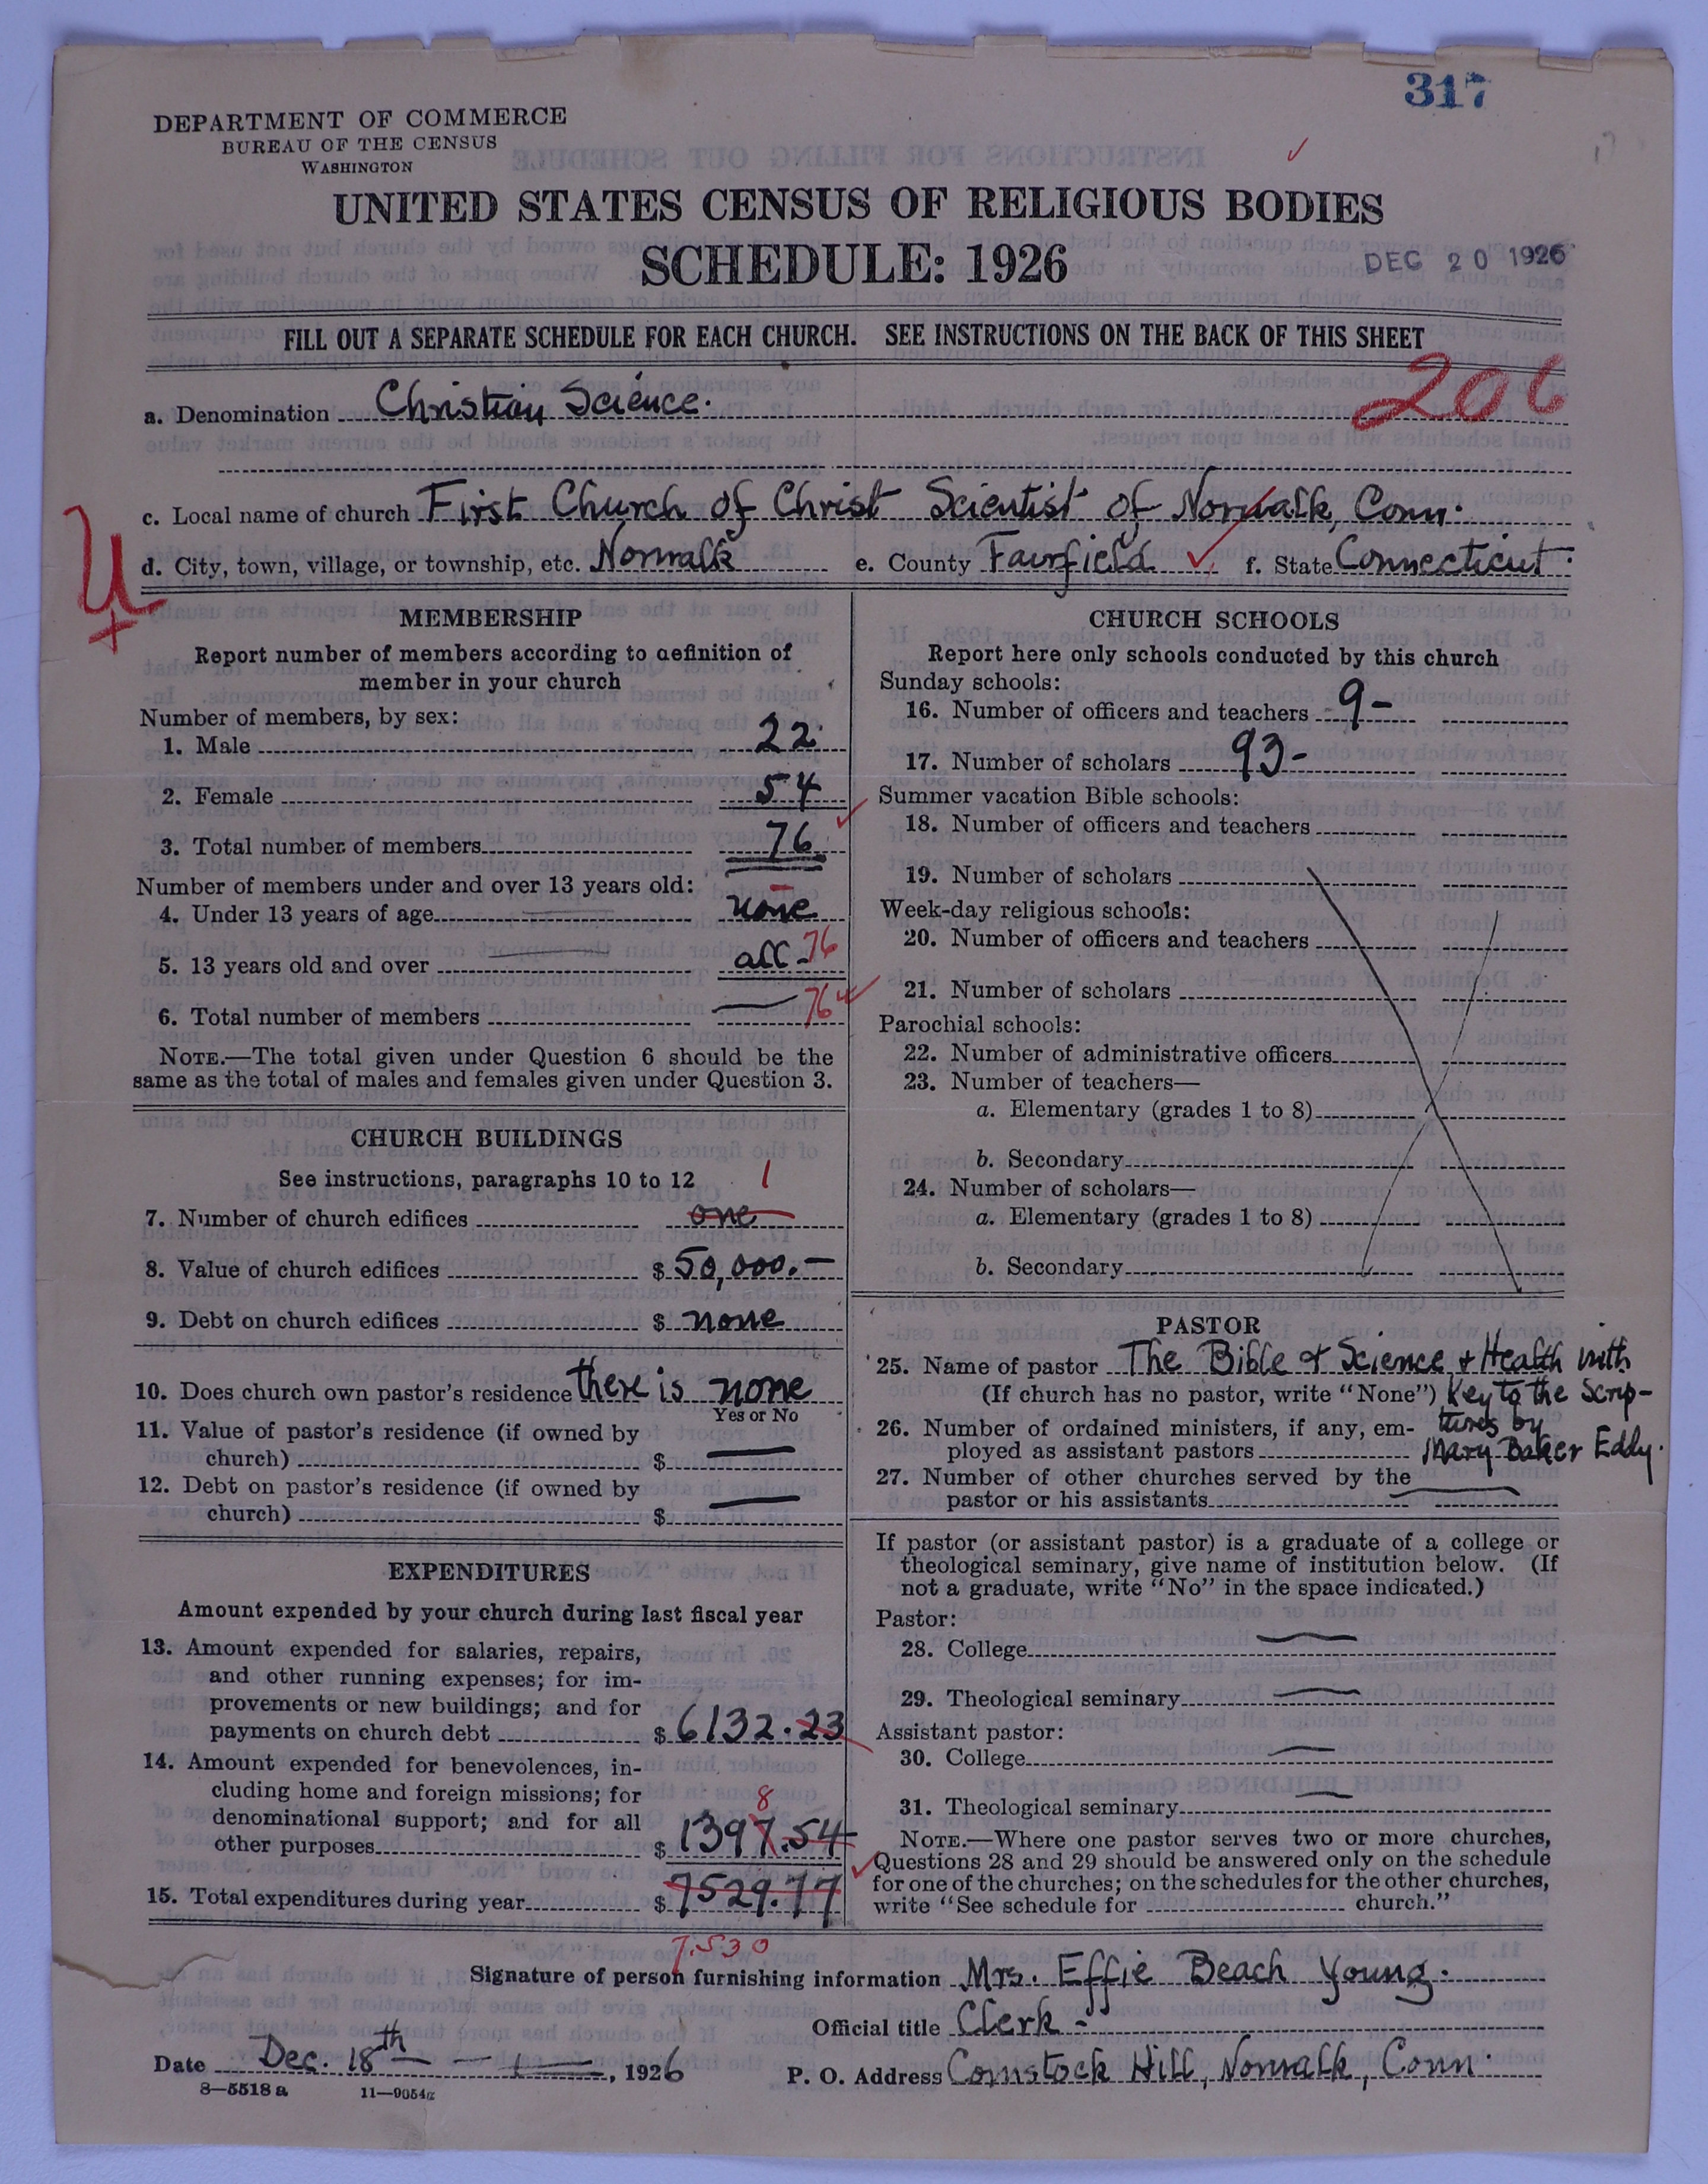 317
DEPARTMENT OF COMMERCE
BUREAU OF THE CENSUS
WASHINGTON
UNITED STATES CENSUS OF RELIGIOUS BODIES
SCHEDULE: 1926
DEC 20 1926
FILL OUT A SEPARATE SCHEDULE FOR EACH CHURCH. SEE INSTRUCTIONS ON THE BACK OF THIS SHEET
206
a. Denomination Christian Science.
c. Local name of church First Church of Christ Scientist of Norwalk, Conn.
d. City, town, village, or township, etc. Norwalk e. County Fairfield f. State Connecticut
U
MEMBERSHIP
Report number of members according to definition of
member in your church
Number of members, by sex:
1. Male 22
2. Female 54
3. Total number of members 76
Number of members under and over 13 years old:
4. Under 13 years of age none
5. 13 years old and over all - 76
6. Total number of members 76
NOTE.—The total given under Question 6 should be the
same as the total of males and females given under Question 3.
CHURCH BUILDINGS
See instructions, paragraphs 10 to 12
1
7. Number of church edifices one
8. Value of church edifices $ 50,000.—
9. Debt on church edifices $ none
10. Does church own pastor's residence there is none
Yes or No
11. Value of pastor's residence (if owned by
church) $ —
12. Debt on pastor's residence (if owned by
church) $ —
EXPENDITURES
Amount expended by your church during last fiscal year
13. Amount expended for salaries, repairs,
and other running expenses; for im-
provements or new buildings; and for
payments on church debt $ 6132.23
14. Amount expended for benevolences, in-
cluding home and foreign missions; for
8
denominational support; and for all
other purposes $ 1397.54
15. Total expenditures during year $ 7529.77
7,530
CHURCH SCHOOLS
Report here only schools conducted by this church
Sunday schools:
16. Number of officers and teachers 9-
17. Number of scholars 93-
Summer vacation Bible schools:
18. Number of officers and teachers
19. Number of scholars
Week-day religious schools:
20. Number of officers and teachers
21. Number of scholars
Parochial schools:
22. Number of administrative officers
23. Number of teachers—
a. Elementary (grades 1 to 8)
b. Secondary
24. Number of scholars—
a. Elementary (grades 1 to 8)
b. Secondary
PASTOR
25. Name of pastor The Bible & Science & Health with
(If church has no pastor, write "None") Key to the Scrip-
26. Number of ordained ministers, if any, em- tures by
ployed as assistant pastors Mary Baker Eddy.
27. Number of other churches served by the
pastor or his assistants
If pastor (or assistant pastor) is a graduate of a college or
theological seminary, give name of institution below. (If
not a graduate, write "No" in the space indicated.)
Pastor:
28. College —
29. Theological seminary —
Assistant pastor:
30. College —
31. Theological seminary —
NOTE.—Where one pastor serves two or more churches,
Questions 28 and 29 should be answered only on the schedule
for one of the churches; on the schedules for the other churches,
write "See schedule for church."
Signature of person furnishing information Mrs. Effie Beach Young.
Official title Clerk -
Date Dec. 18th, 1926 P. O. Address Comstock Hill, Norwalk, Conn.
8—5518 a 11—9054a